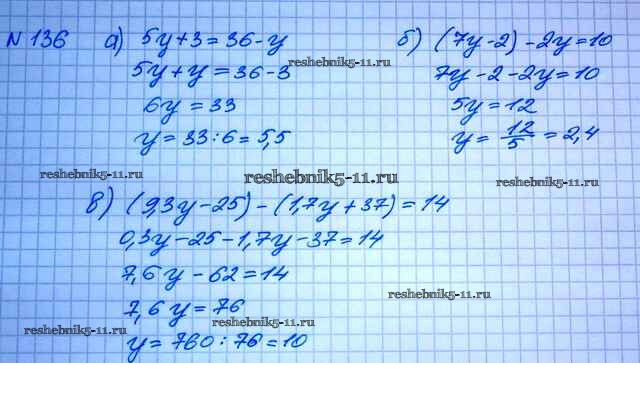 N 136 а) 5y+3=36-y
5y+y=36-3
6y=33
y=33:6=5,5
б) (7y-2)-2y=10
7y-2-2y=10
5y=12
y=12/5=2,4
в) (9,3y-25)-(1,7y+37)=14
0,3y-25-1,7y-37=14
7,6y-62=14
7,6y=76
y=760:76=10
reshebnik5-11.ru
reshebnik5-11.ru
reshebnik5-11.ru
reshebnik5-11.ru
reshebnik5-11.ru
reshebnik5-11.ru
reshebnik5-11.ru